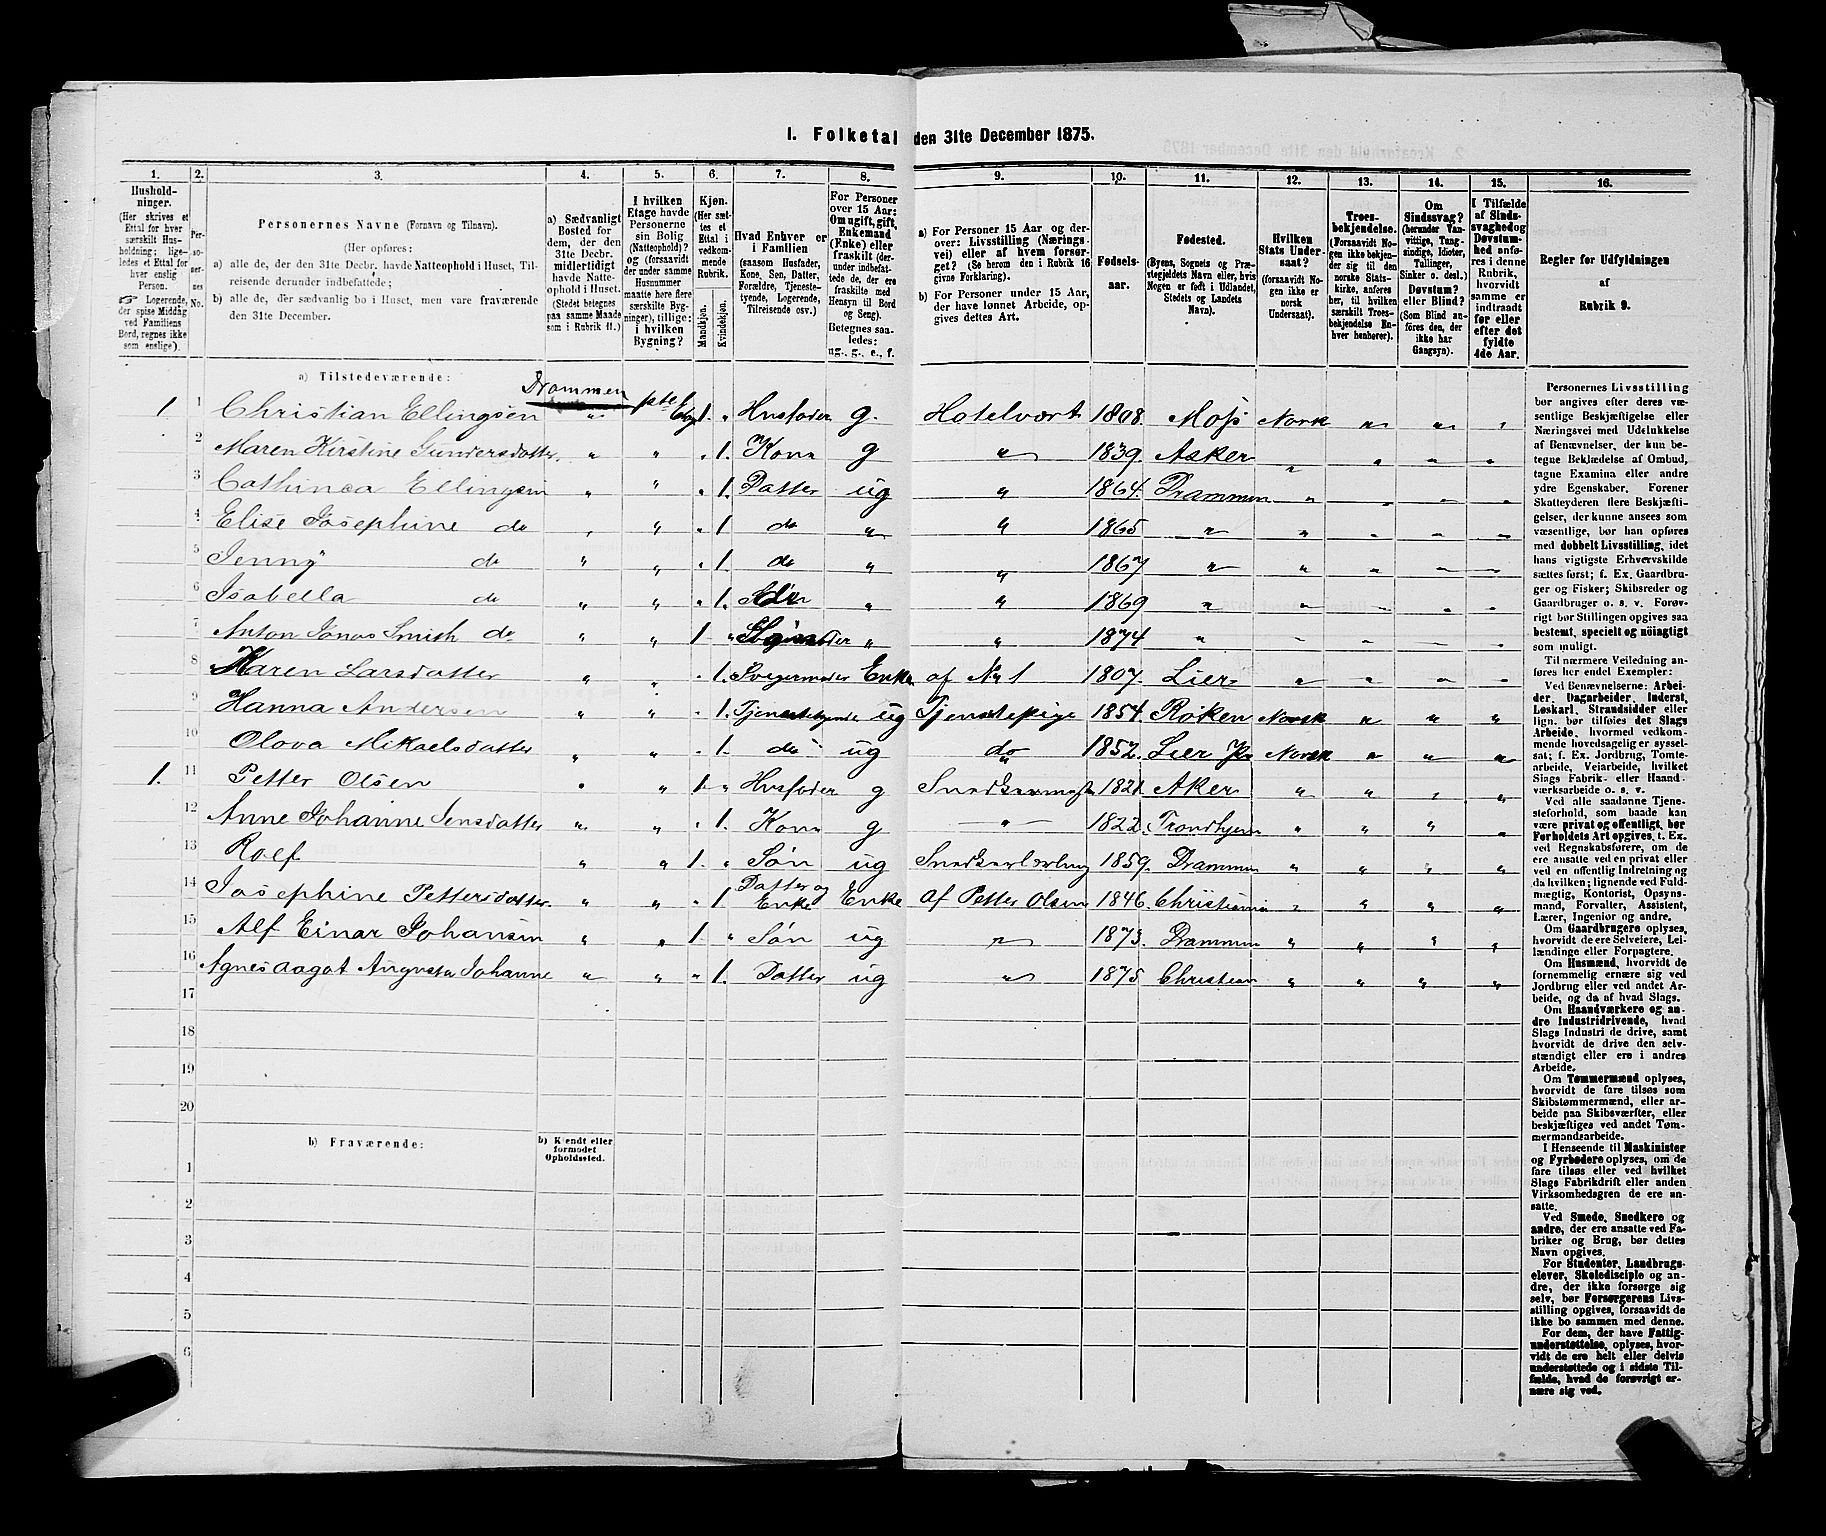 1. Folketal den 31te December 1875.
1. 2. 3. 4. 5. 6. 7. 8. 9. 10. 11. 12. 13. 14. 15. 16.
Hushold-
ninger.
(Her skrives et
Ettal for hver
særskilt Hus-
holdning; lige-
ledes et Ettal for
hver enslig
Person.
☞ Logerende,
der spise Middag
ved Familiens
Bord, regnes ikke
som enslige).
Per-
so-
ner-
nes
No.
Personernes Navne (Fornavn og Tilnavn).
(Her opføres:
a) alle de, der den 31te Decbr. havde Natteophold i Huset, Til-
reisende derunder indbefattede;
b) alle de, der sædvanlig bo i Huset, men vare fraværende
den 31te December.
a) Sædvanligt
Bosted for
dem, der den
31te Decbr.
midlertidigt
havde Natte-
ophold i Huset.
(Stedet betegnes
paa samme Maade
som i Rubrik 11.)
I hvilken
Etage havde
Personerne
sin Bolig
(Natteophold)?
og (forsaavidt
der under samme
Husnummer
maatte høre flere
særskilte Byg-
ninger), tillige:
i hvilken
Bygning?
Kjøn.
(Her sæt-
tes et
Ettal i
vedkom-
mende
Rubrik.
Mandkjøn.
Kvindekjøn.
Hvad Enhver er
i Familien
(saasom Husfader,
Kone, Søn, Datter,
Forældre, Tjeneste-
tyende, Logerende,
Tilreisende osv.)
For Personer
over 15 Aar:
Om ugift, gift,
Enkemand
(Enke) eller
fraskilt (der-
under indbefat-
tede de, der
ere fraskilte med
Hensyn til Bord
og Seng).
Betegnes saa-
ledes:
ug., g., e., f.
a) For Personer 15 Aar og der-
over: Livsstilling (Nærings-
vei) eller af hvem forsør-
get? (Se herom den i Rubrik 16
givne Forklaring).
b) For Personer under 15 Aar,
der have lønnet Arbeide, op-
gives dettes Art.
Fødsels-
aar.
Fødested.
(Byens, Sognets og Præ-
stegjeldets Navn eller, hvis
Nogen er født i Udlandet,
Stedets og Landets
Navn).
Hvilken
Stats Under-
saat?
(forsaavidt No-
gen ikke er
norsk
Undersaat).
Troes-
bekjendelse.
(Forsaavidt No-
gen ikke bekjen-
der sig til den
norske Stats-
kirke, anføres
her, til hvilken
særskilt Troes-
bekjendelse En-
hver henhører).
Om
Sindssvag?
(herunder Van-
vittige, Tung-
sindige, Idioter,
Tullinger,
Sinker o. desl.)
Døvstum?
eller Blind?
(Som Blind an-
føres den, der
ikke har
Gangsyn).
I Tilfælde
af Sinds-
svaghed og
Døvstum-
hed anfø-
res i denne
Rubrik,
hvorvidt
samme er
indtraadt
før eller
efter det
fyldte
4de Aar.
Regler for Udfyldningen
af
Rubrik 9.
a) Tilstedeværende:
Drammen
1. 1 Christian Ellingsen " pte Etage 1. " Husfader g. Hotelvært 1808. Moss Norsk " " "
2 Maren Kirstine Gundersdatter " " " 1. Kone g " 1839. Asker " " " "
3 Cathinca Ellingsen " " " 1. Datter ug " 1864. Drammen " " " "
4 Elise Josephine do " " " 1 do " " 1865 " " " " "
5 Jenny do " " " 1. do " " 1867 " " " " "
6 Isabella do " " " 1. " " 1869 " " " " "
7 Anton Jonas Smith do " " 1 " Søn " " 1874 " " " " "
8 Karen Larsdatter " " " 1. Svigermoder Enke af No 1 1807. Lier " " " "
9 Hanna Andersen " " " 1. Tjenestetyende ug Tjenstepige 1854. Røken Norsk " " "
10 Olova Mikaelsdatter " " " 1. do ug do 1852. Lier Norsk " " "
1. 11 Petter Olsen " " 1. " Husfader g Snedkermester 1821. Aker " " " "
12 Anne Johanne Jensdatter " " " 1. Kone g " 1822. Trondhjem " " " "
13 Rolf " " 1. " Søn ug Snedkerlærling 1859. Drammen " " " "
14 Josephine Pettersdatter " " " 1 Datter og Enke Enke af Petter Olsen 1846. Christiania " " " "
15 Alf Einar Johansen " " 1. " Søn ug " 1873. Drammen " " " "
16 Agnes Aagot Augusta Johanne " " " 1. Datter ug " 1875 Christian " " " "
17
18
19
20
b) Fraværende:
b) Kjendt eller
formodet
Opholdssted.
1
2
3
4
5
6
Personernes Livsstilling
bør angives efter deres væ-
sentlige Beskjæftigelse eller
Næringsvei med Udelukkelse
af Benævnelser, der kun be-
tegne Beklædelse af Ombud,
tagne Examina eller andre
ydre Egenskaber. Forener
Skatteyderen flere Beskjæfti-
gelser, der kunne ansees som
væsentlige, bør han opføres
med dobbelt Livsstilling, idet
hans vigtigste Erhvervskilde
sættes først; f. Ex. Gaardbru-
ger og Fisker; Skibsreder og
Gaardbruger o. s. v. Forøv-
rigt bør Stillingen opgives saa
bestemt, specielt og nøiagtigt
som muligt.
Til nærmere Veiledning an-
føres her endel Exempler:
Ved Benævnelserne: Arbei-
der, Dagarbeider, Inderst,
Løskarl, Strandsidder eller
lign. bør tilføies det Slags
Arbeide, hvormed vedkom-
mende hovedsagelig er syssel-
sat; f. Ex. Jordbrug, Tomte-
arbeide, Veiarbeide, hvilket
Slags Fabrik- eller Haand-
værksarbeide o. s. v.
Ved alle saadanne Tjene-
steforhold, som baade kan
være privat og offentligt, bør
Forholdets Art opgives, t. Ex.
ved Regnskabsførere, om de
ere ansatte ved en privat eller
ved en offentlig Indretning og
da hvilken; lignende ved Fuld-
mægtig, Kontorist, Opsyns-
mand, Forvalter, Assistent,
Lærer, Ingeniør og andre.
Om Gaardbrugere oplyses,
hvorvidt de ere Selveiere, Lei-
lændinge eller Forpagtere.
Om Husmænd, hvorvidt de
fornemmelig ernære sig ved
Jordbrug eller ved andet Ar-
beide, og da af hvad Slags.
Om Haandværkere og an-
dre Industridrivende, hvad
Slags Industri de drive, samt
hvorvidt de drive den selv-
stændigt eller ere i andres
Arbeide.
Om Tømmermænd oplyses,
hvorvidt de fare tilsøs som
Skibstømmermænd, eller ar-
beide paa Skibsværfter, eller
beskjæftiges ved andet Tøm-
mermandsarbeide.
I Henseende til Maskinister
og Fyrbødere oplyses, om de
fare tilsøs eller ved hvilket
Slags Fabrikdrift eller anden
Virksomhedsgren de ere an-
satte.
Ved Smede, Snedkere og
andre, der ere ansatte ved Fa-
briker og Brug, bør dettes
Navn opgives.
For Studenter, Landbrugs-
elever, Skoledisciple og an-
dre, der ikke forsørge sig
selv, bør Forsørgerens Livs-
stilling opgives, forsaavidt de
ikke bo sammen med denne.
For dem, der have Fattig-
understøttelse, oplyses, hvor-
vidt de ere helt eller delvis
understøttede og i sidste Til-
fælde, hvad de forøvrigt er-
nære sig ved.